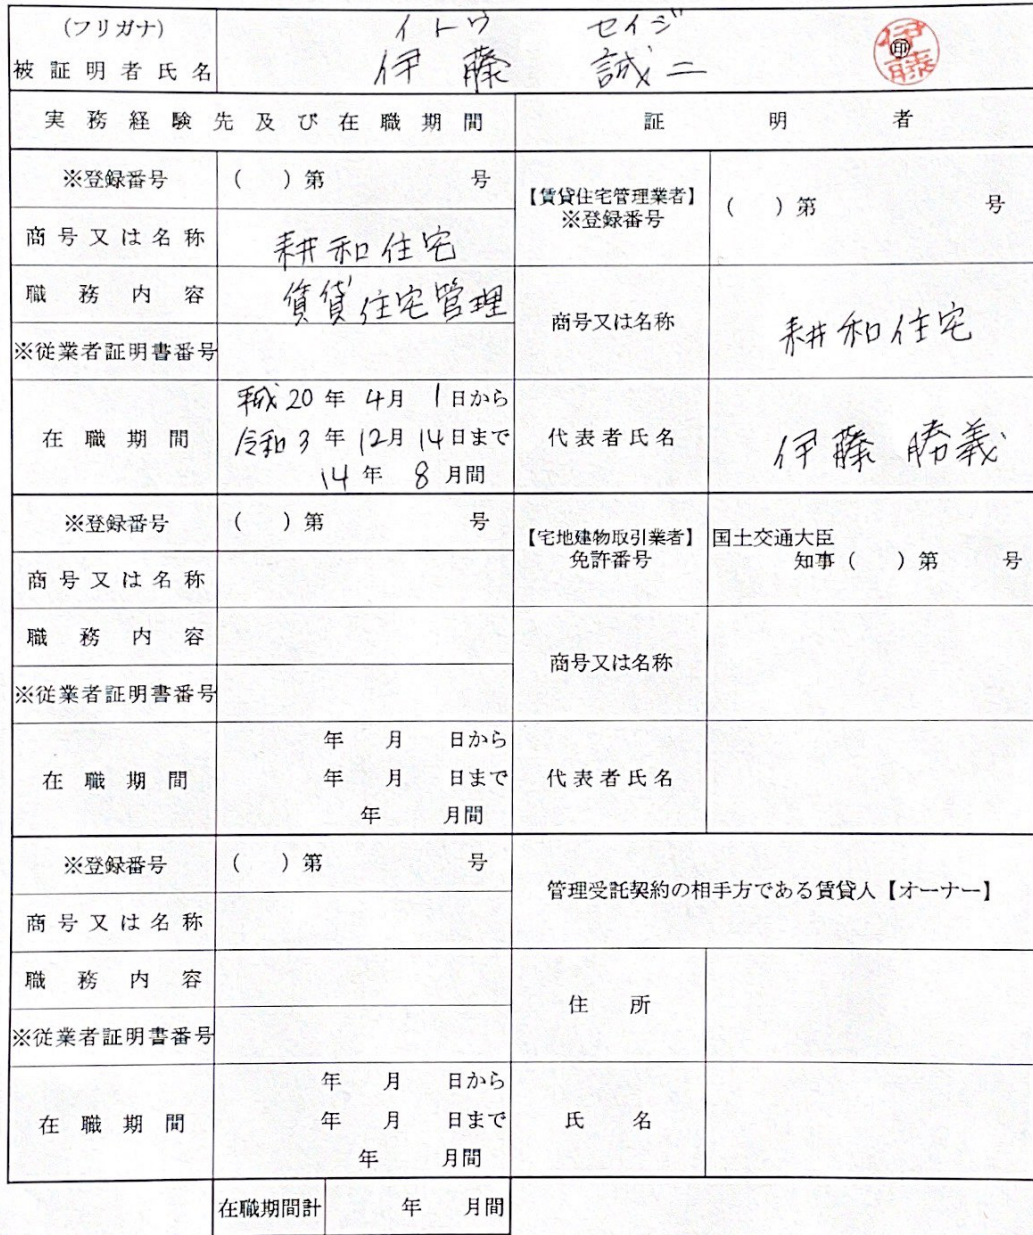 (フリガナ) イトウ セイジ
被証明者氏名 伊藤 誠二 伊藤 印
実務経験先及び在職期間 証明者
※登録番号 ( ) 第 号
【賃貸住宅管理業者】
※登録番号 ( ) 第 号
商号又は名称 耕和住宅
職務内容 賃貸住宅管理
※従業者証明書番号
商号又は名称 耕和住宅
在職期間 平成20年 4月 1日から
令和3年 12月 14日まで
14年 8月間
代表者氏名 伊藤 勝義
※登録番号 ( ) 第 号
【宅地建物取引業者】
免許番号
国土交通大臣
知事 ( ) 第 号
商号又は名称
職務内容
※従業者証明書番号
商号又は名称
在職期間 年 月 日から
年 月 日まで
年 月間
代表者氏名
※登録番号 ( ) 第 号
管理受託契約の相手方である賃貸人【オーナー】
商号又は名称
職務内容
※従業者証明書番号
住所
在職期間 年 月 日から
年 月 日まで
年 月間
氏名
在職期間計 年 月間